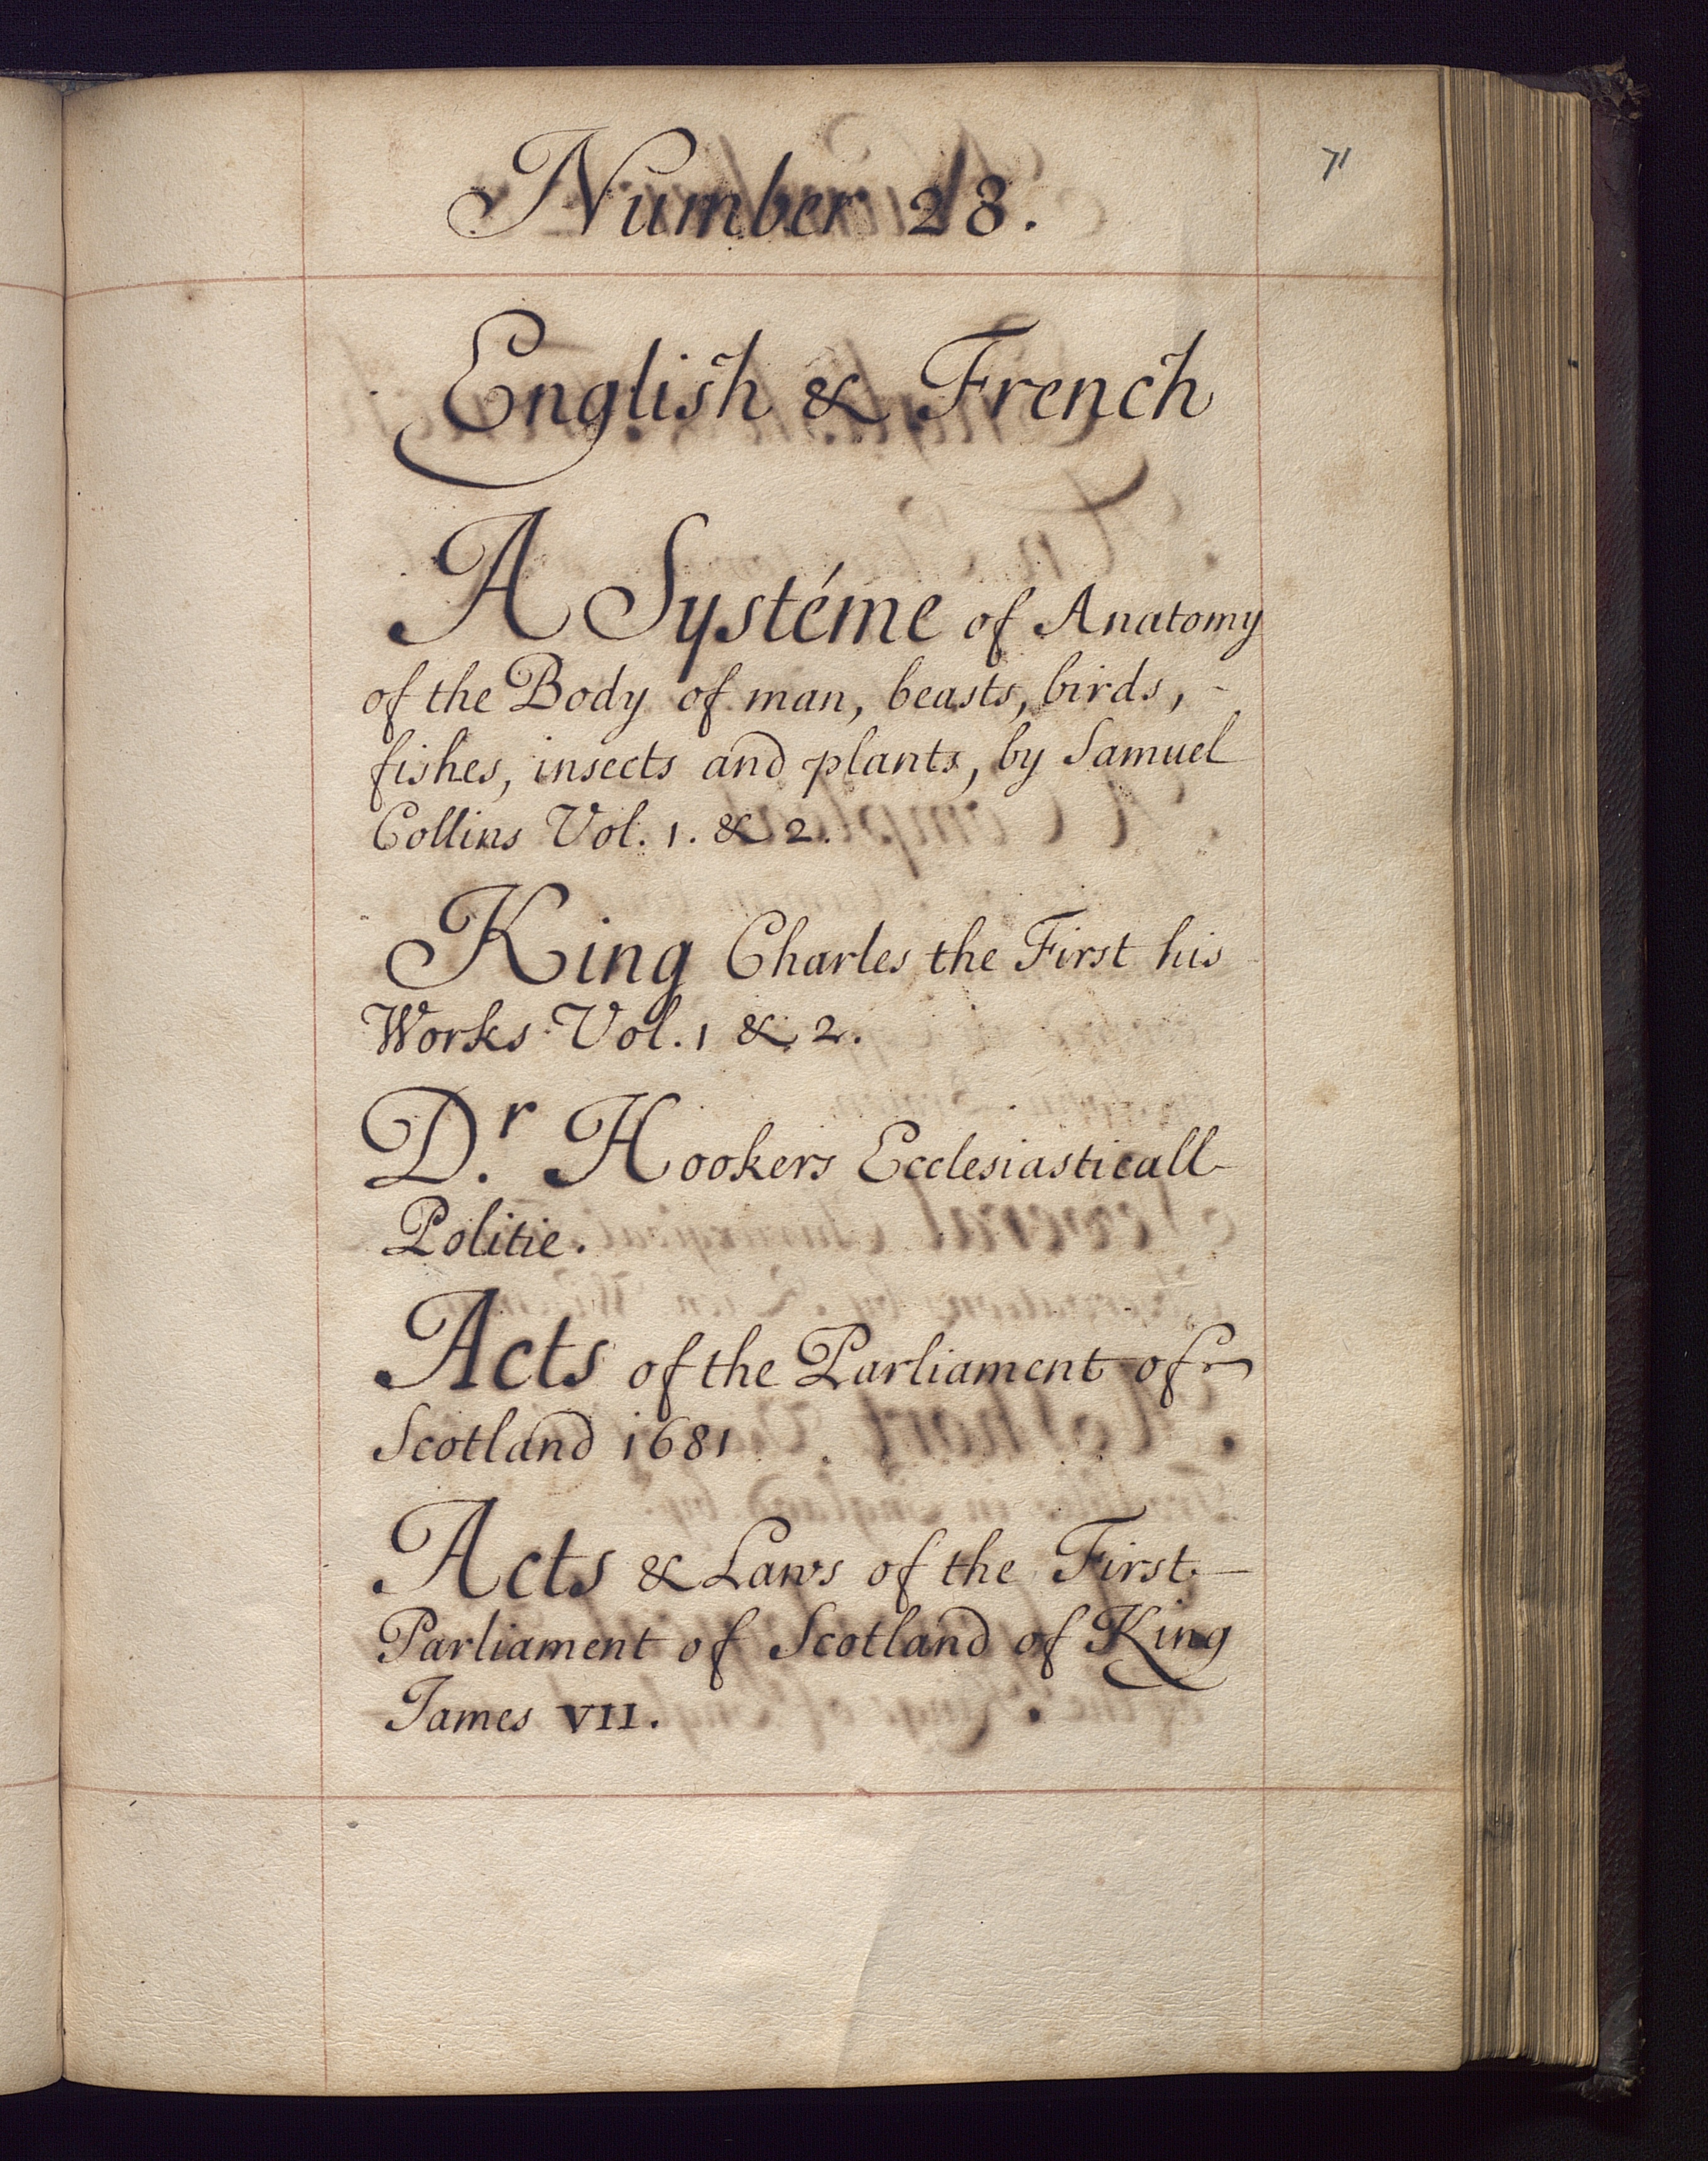 71
Number 28.
English & French
A Systéme of Anatomy
of the Body of man, beasts, birds, -
fishes, insects and plants, by Samuel
Collins Vol. 1. & 2.
King Charles the First his
Works Vol. 1 & 2.
Dr. Hookers Ecclesiasticall
Politie.
Acts of the Parliament of
Scotland 1681
Acts & Laws of the First. —
Parliament of Scotland of King
James VII.